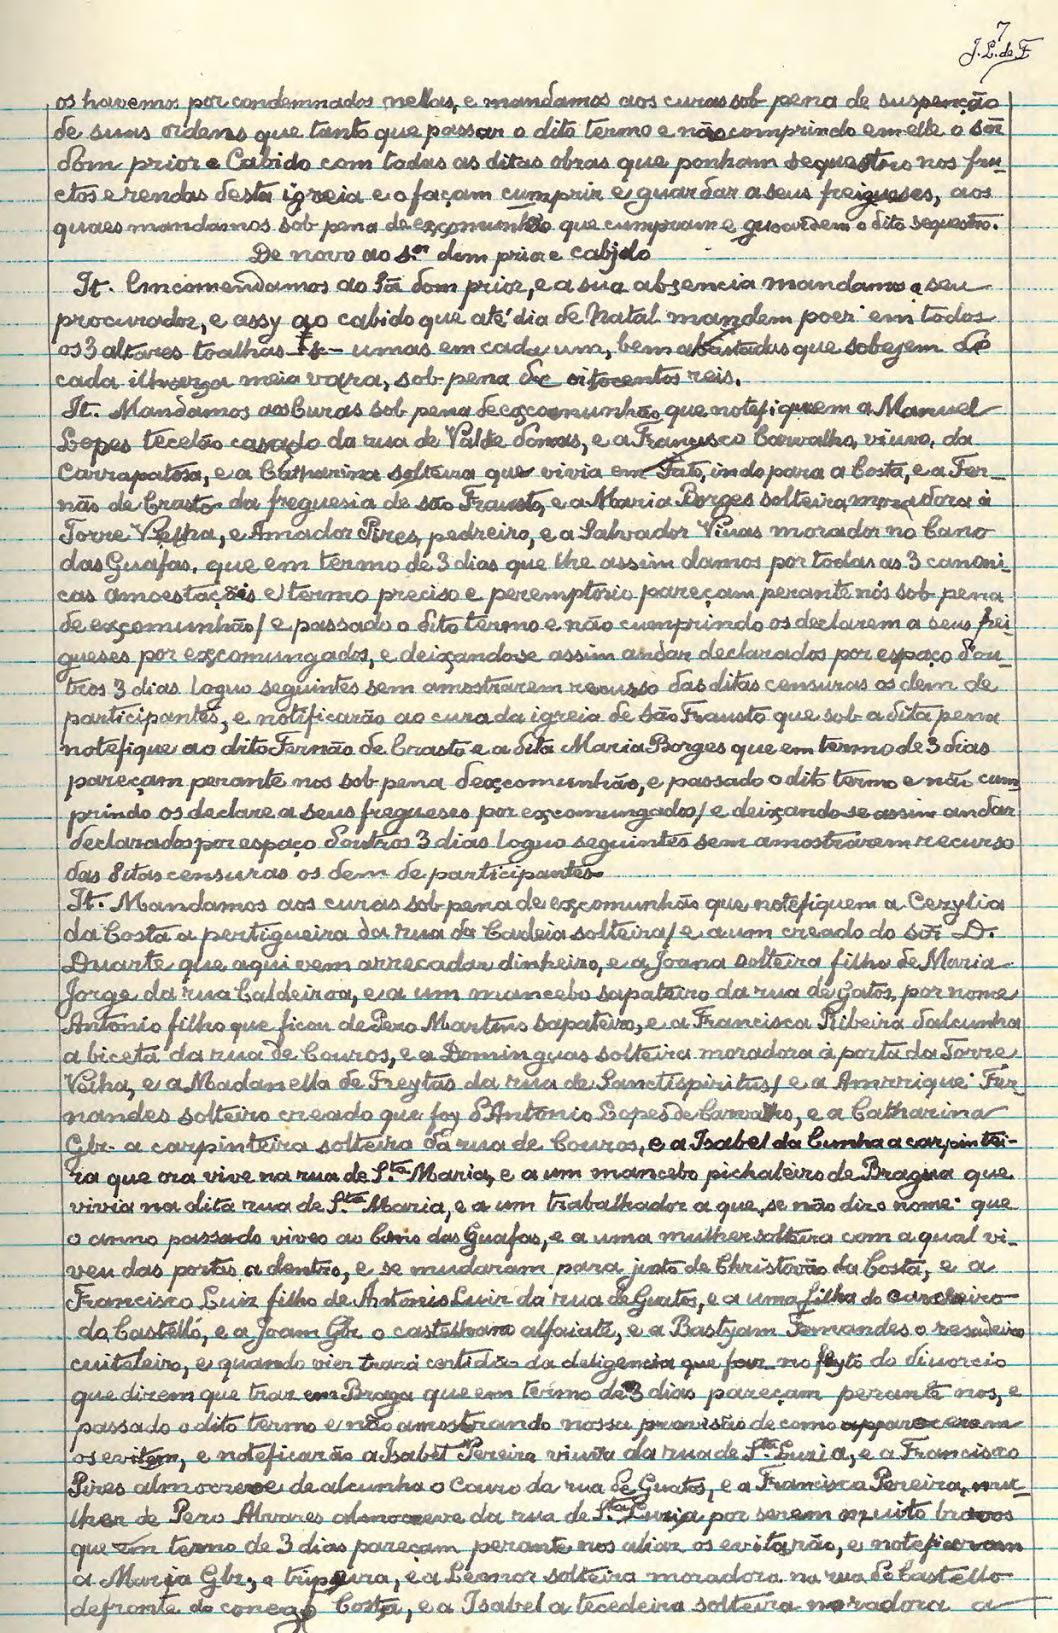 7
J. L. de F
os havemos por condemnados nellas, e mandamos aos curas sob pena de suspenção
de suas ordens que tanto que passar o dito termo e não comprindo em elle o sõr
dom prior e Cabido com todas as ditas obras que ponham sequestro nos fru-
ctos e rendas desta igreia e o façam cumprir e guardar a seus freigueses, aos
quaes mandamos sob pena de exçomunhão que cumpram e guoardem o dito sequestro.
De novo ao s.or dom prior e cabjdo
It. Emcomendamos ao sõr dom prior, e a sua absencia mandamos a seu
procurador, e assy ao cabido que até dia de Natal mandem poer em todos
os 3 altares toalhas umas em cada um, bem abastadas que sobejem de
cada ilharga meia vara, sob pena de oitocentos reis.
It. Mandamos aos Curas sob pena de exçomunhão que notefiquem a Manuel
Lopes tecelão casado da rua de Valde donas, e a Francisco Carvalho, viuvo, da
Carrapatosa, e a Catharina solteira que vivia em Fato, indo para a Costa, e a Fer-
não de Crasto da freguesia de são Frausto, e a Maria Borges solteira, moradora à
Torre Velha, e Amador Pires, pedreiro, e a Salvador Vinas morador no Cano
das Guafas, que em termo de 3 dias que lhe assim damos por todas as 3 canoni-
cas amoestações e termo preciso e peremptorio pareçam perante nós sob pena
de exçomunhão / e passado o dito termo e não cumprindo os declarem a seus frei-
gueses por exçomungados, e deixando-se assim andar declarados por espaço d'ou-
tros 3 dias loguo seguintes sem amostrarem recurso das ditas censuras os dem de
participantes, e notificarão ao cura da igreia de são Frausto que sob a dita pena
notefique ao dito Fernão de Crasto e a dita Maria Borges que em termo de 3 dias
pareçam perante nos sob pena de exçomunhão, e passado o dito termo e não cum-
prindo os declare a seus fregueses por exçomungados / e deixando-se assim andar
declarados por espaço doutros 3 dias loguo seguintes sem amostrarem recurso
das ditas censuras os dem de participantes.
It. Mandamos aos curas sob pena de exçomunhão que notefiquem a Cezylia
da Costa a pertigueira da rua da Cadeia solteira / e a um creado do sõr D.
Duarte que aqui vem arrecadar dinheiro, e a Joana solteira filha de Maria
Jorge da rua Caldeiroa, e a um mancebo sapateiro da rua de Gatos, por nome
Antonio filho que ficou de Pero Martins sapateiro, e a Francisca Ribeira dalcunha
a biceta da rua de Couros, e a Dominguas solteira moradora à porta da Torre
Velha, e a Madanella de Freytas da rua de Sanctispiritus / e a Amrrique Fer-
nandes solteiro creado que foy d'Antonio Lopes de Carvalho, e a Catharina
Glz. a carpinteira solteira da rua de Couros, e a Isabel da Cunha a carpintei-
ra que ora vive na rua de S.ta Maria, e a um mancebo pichaleiro de Bragua que
vivia na dita rua de S.ta Maria, e a um trabalhador a que se não diz o nome que
o anno passado viveo ao Cano das Guafas, e a uma mulher solteira com a qual vi-
veu das portas a dentro, e se mudaram para junto de Christovão da Costa, e a
Francisco Luiz filho de Antonio Luiz da rua de Guatos, e a uma filha do carcereiro
do Castello, e a Joam Glz. o castelhano alfaiate, e a Bastjam Fernandes o
cuitaleiro, e quando vier trará certidão da deligencia que fez no feyto do divorcio
que dizem que traz em Braga que em termo de 3 dias pareçam perante nos, e
passado o dito termo e não amostrando nossa provisão de como appareceram
os evitem, e noteficarão a Isabel Pereira viuva da rua de S.ta Luzia, e a Francisco
Pires almocreve de alcunha o Couro da rua de Guatos, e a Francisca Pereira, mu-
lher de Pero Alvares almocreve da rua de S.ta Luzia por serem muito bravos
que em termo de 3 dias pareçam perante nos aliaz os evitarão, e noteficaram
a Maria Glz. a tripeira, e a Leanor solteira moradora na rua do Castello
defronte do conego Costa, e a Isabel a tecedeira solteira moradora a